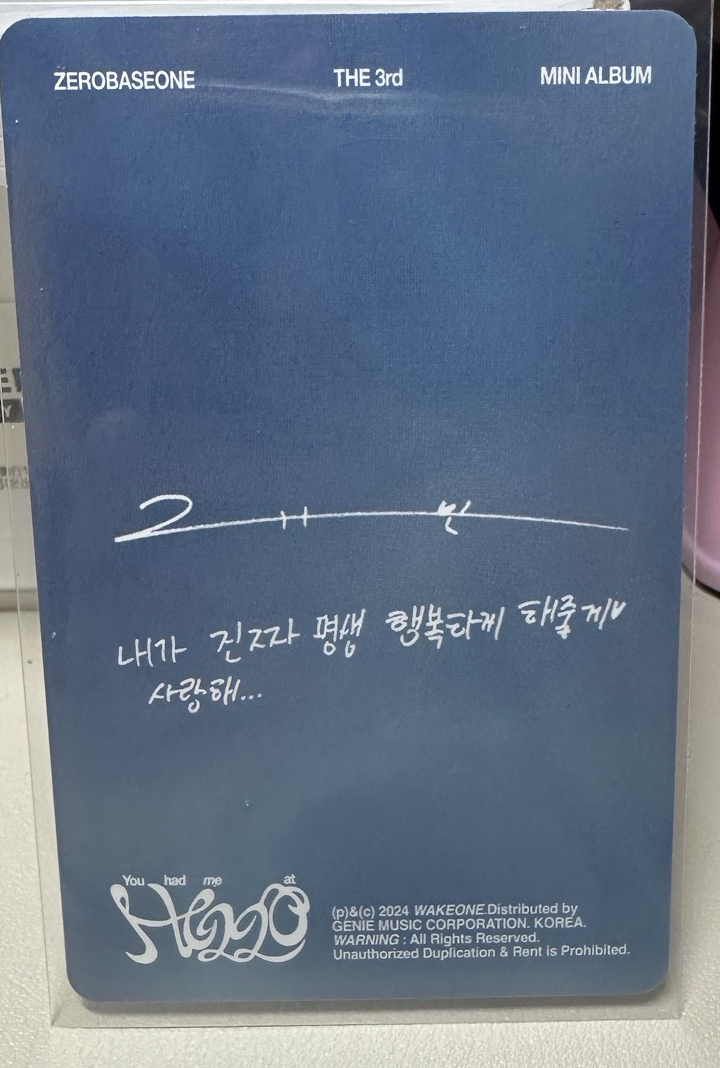 ZEROBASEONE THE 3rd MINI ALBUM
내가 진짜 평생 행복하게 해줄게♥
사랑해...
You had me at
HELLO
(p)&(c) 2024 WAKEONE.Distributed by
GENIE MUSIC CORPORATION. KOREA.
WARNING : All Rights Reserved.
Unauthorized Duplication & Rent is Prohibited.